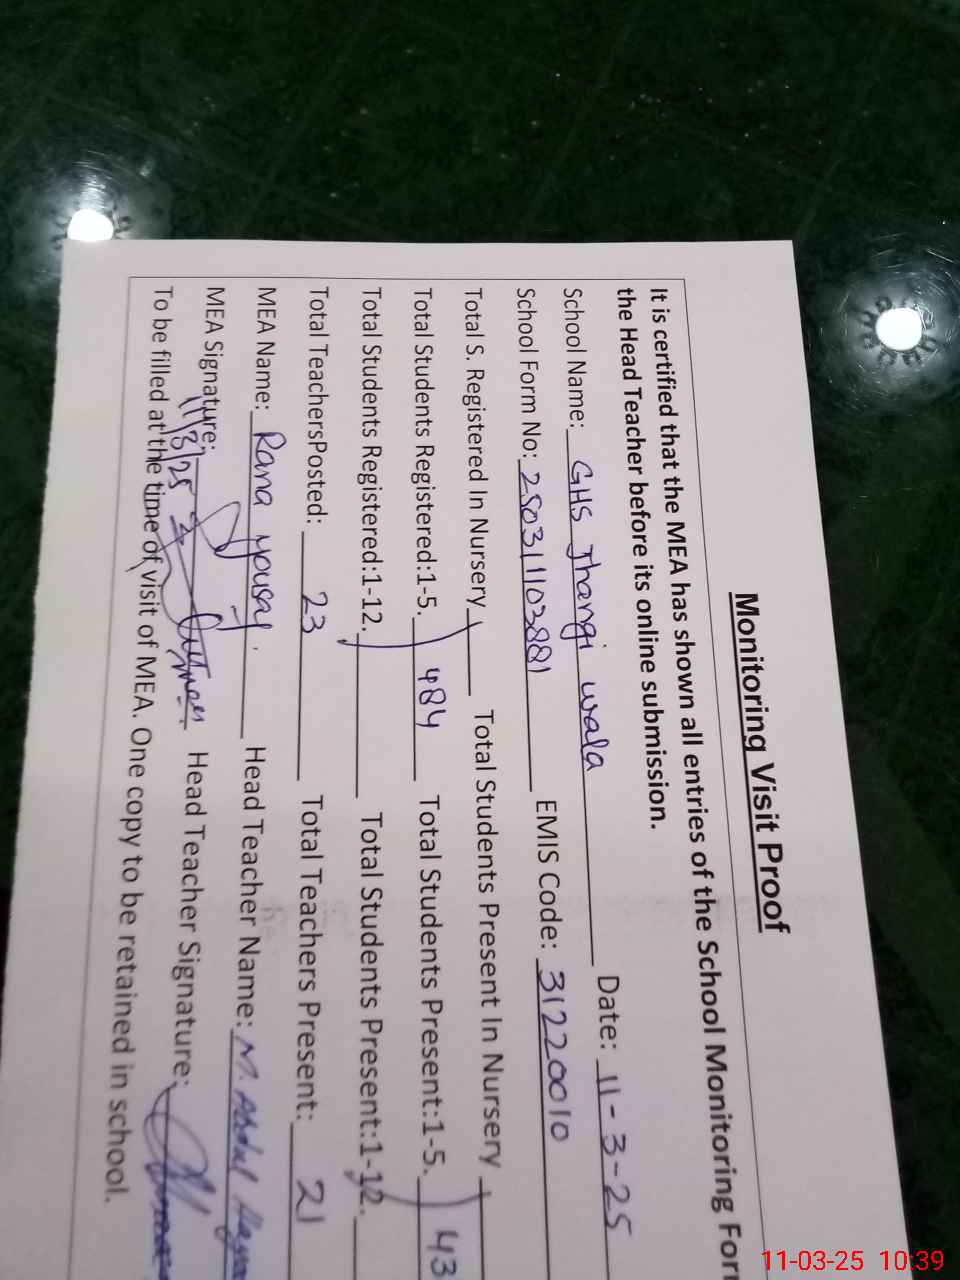 Monitoring Visit Proof
It is certified that the MEA has shown all entries of the School Monitoring For
the Head Teacher before its online submission.
School Name: GHS Jhangi wala Date: 11-3-25
School Form No: 250311103881 EMIS Code: 31220010
Total S. Registered In Nursery Total Students Present In Nursery
Total Students Registered:1-5. 484 Total Students Present:1-5. 43
Total Students Registered:1-12. Total Students Present:1-12.
Total TeachersPosted: 23 Total Teachers Present: 21
MEA Name: Rana yousaf. Head Teacher Name: M. Abdul
MEA Signature: Head Teacher Signature:
11/3/25
To be filled at the time of visit of MEA. One copy to be retained in school.
11-03-25 10:39